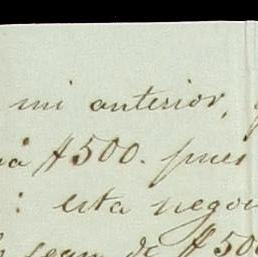 mi anterior,
$500. pues
: esta nego
de $50